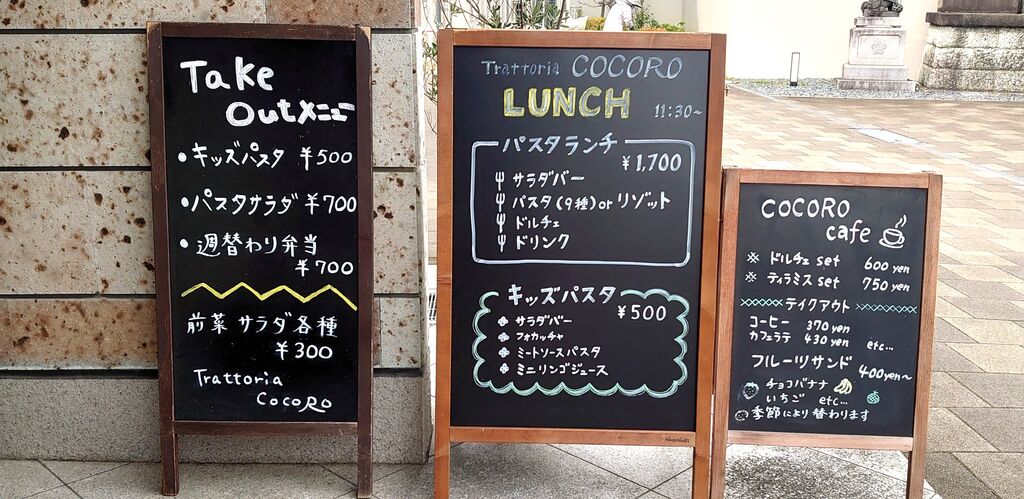 Take
Outメニュー
・キッズパスタ ¥500
・パスタサラダ ¥700
・週替わり弁当
¥700
前菜 サラダ各種
¥300
Trattoria
COCORO
Trattoria COCORO
LUNCH 11:30~
パスタランチ
¥1,700
サラダバー
パスタ(9種)or リゾット
ドルチェ
ドリンク
キッズパスタ
¥500
サラダバー
フォカッチャ
ミートソースパスタ
ミニリンゴジュース
COCORO
cafe
※ ドルチェ set 600 yen
※ ティラミス set 750 yen
テイクアウト
コーヒー 370 yen
カフェラテ 430 yen etc...
フルーツサンド
400 yen~
チョコバナナ
いちご etc...
季節により替わります